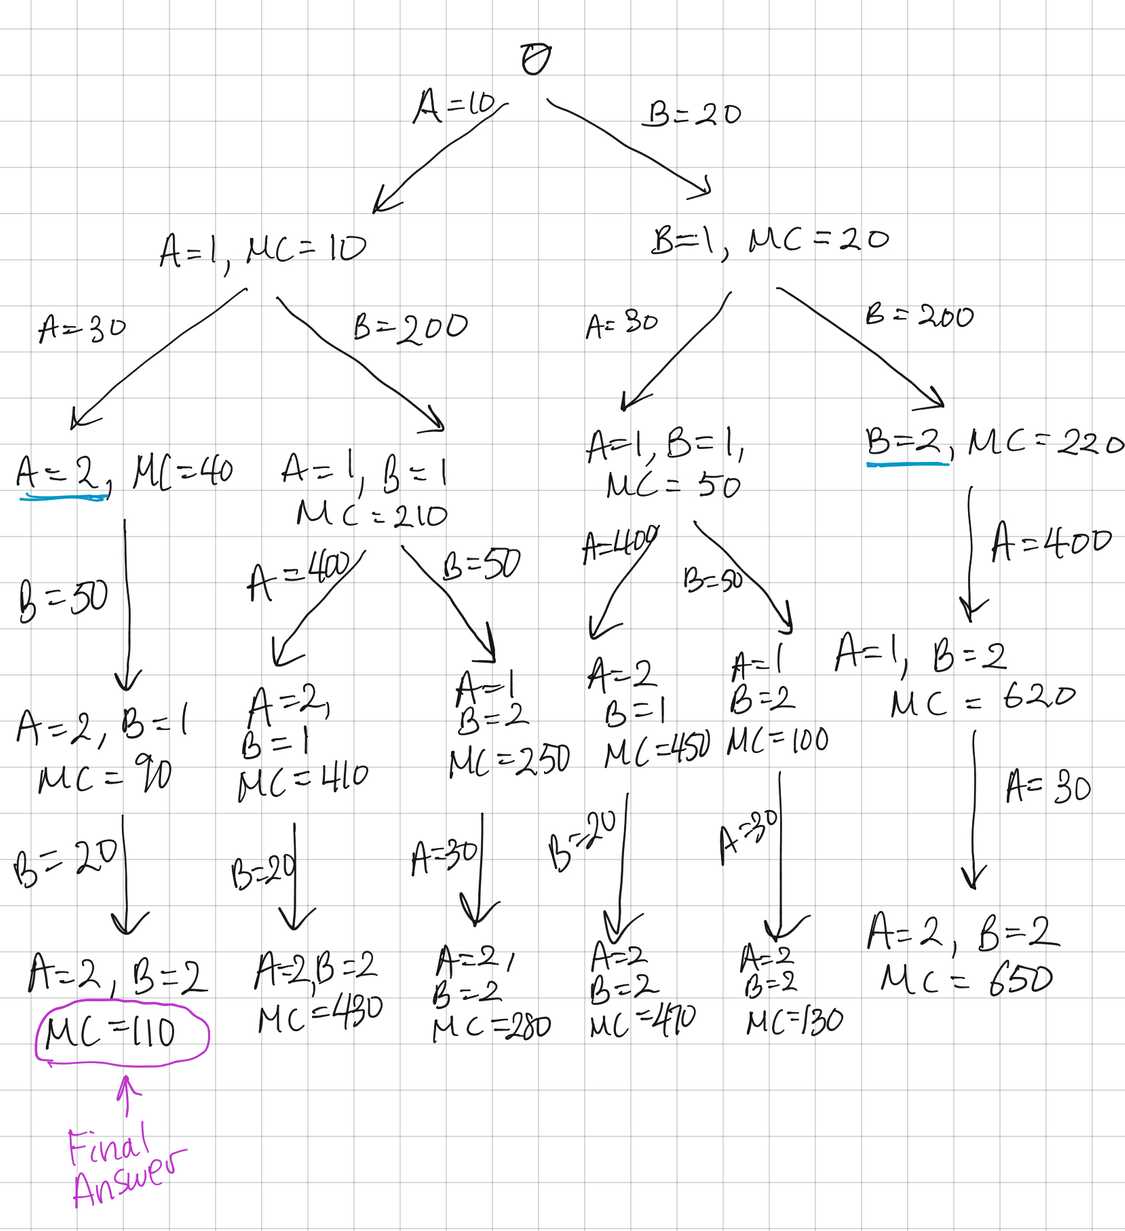 ∅
A=10
B=20
A=1, MC=10
B=1, MC=20
A=30
B=200
A=30
B=200
A=2, MC=40
A=1, B=1
MC=210
A=1, B=1,
MC=50
B=2, MC=220
B=50
A=400
B=50
A=400
B=50
A=400
A=2, B=1
MC=90
A=2,
B=1
MC=410
A=1
B=2
MC=250
A=2
B=1
MC=450
A=1
B=2
MC=100
A=1, B=2
MC=620
B=20
B=20
A=30
B=20
A=30
A=30
A=2, B=2
MC=110
A=2,B=2
MC=430
A=2,
B=2
MC=280
A=2
B=2
MC=470
A=2
B=2
MC=130
A=2, B=2
MC=650
Final
Answer